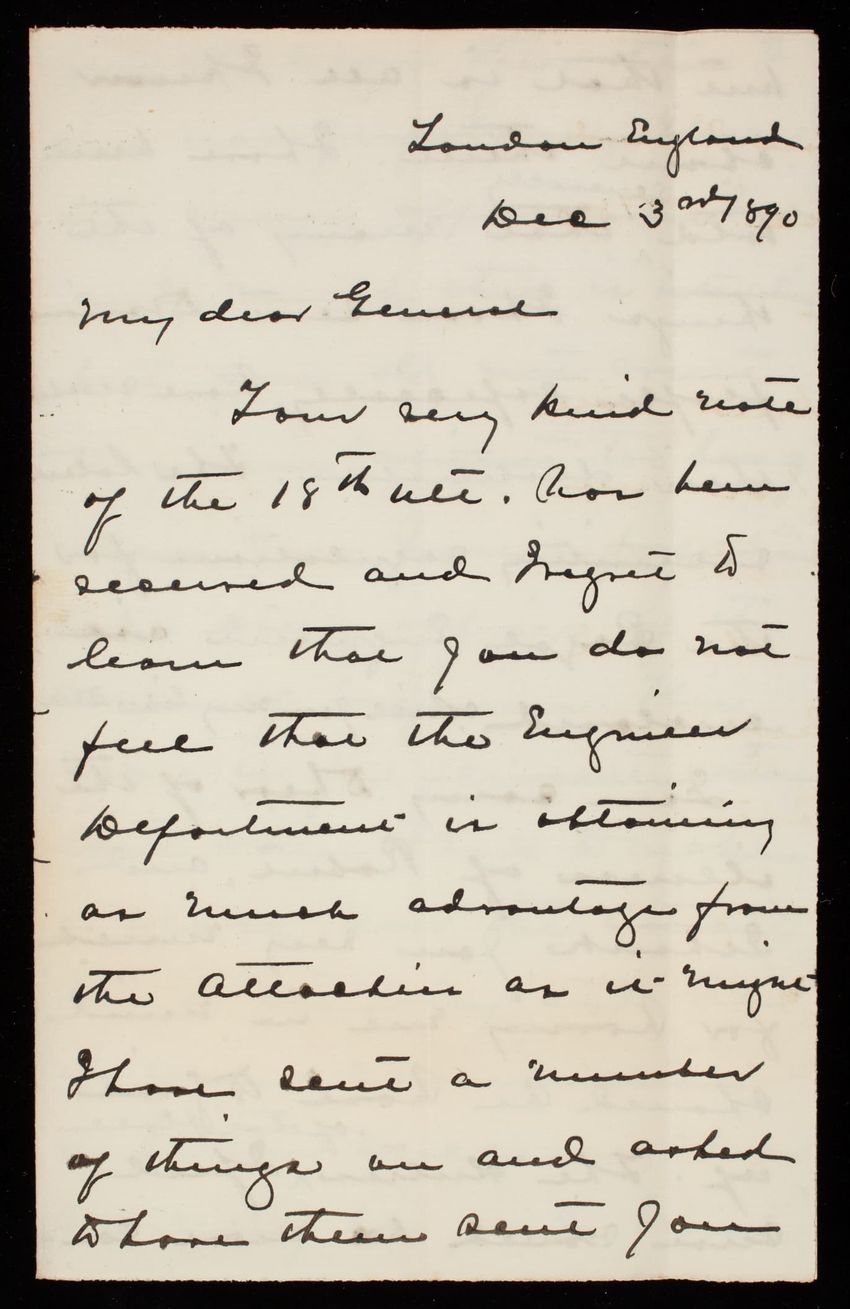 London England
Dec 3rd 1890
My dear General
Your very kind note
of the 18th ult. has been
received and I regret to
learn that you do not
feel that the Engineer
Department is obtaining
as much advantage from
the Attachés as it might
I have sent a number
of things on and asked
to have them sent you